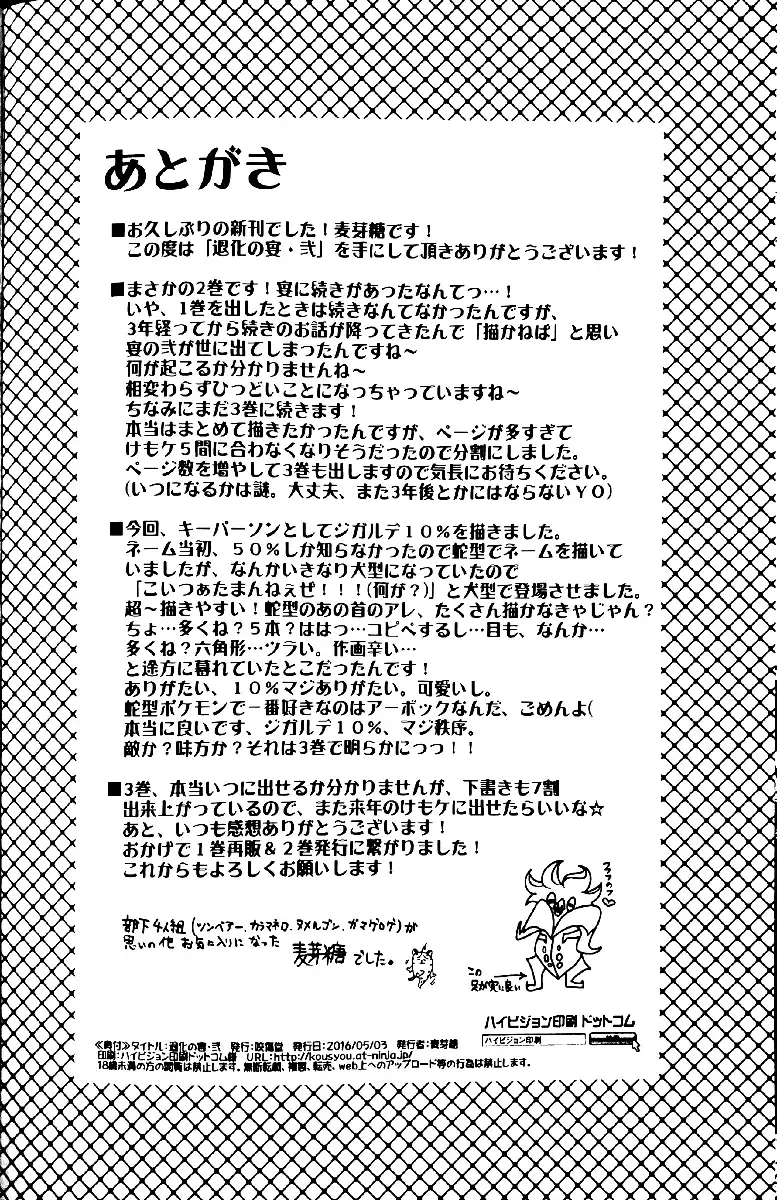 あとがき
■お久しぶりの新刊でした！麦芽糖です！
この度は「退化の宴・弐」を手にして頂きありがとうございます！
■まさかの2巻です！宴に続きがあったなんてっ…！
いや、1巻を出したときは続きなんてなかったんですが、
3年経ってから続きのお話が降ってきたんで「描かねば」と思い
宴の弐が世に出てしまったんですね～
何が起こるか分かりませんね～
相変わらずひっどいことになっちゃっていますね～
ちなみにまだ3巻に続きます！
本当はまとめて描きたかったんですが、ページが多すぎて
けもケ5間に合わなくなりそうだったので分割にしました。
ページ数を増やして3巻も出しますので気長にお待ちください。
(いつになるかは謎。大丈夫、また3年後とかにはならないYO)
■今回、キーパーソンとしてジガルデ10％を描きました。
ネーム当初、50％しか知らなかったので蛇型でネームを描いて
いましたが、なんかいきなり犬型になっていたので
「こいつぁたまんねぇぜ！！！(何が？)」と犬型で登場させました。
超～描きやすい！蛇型のあの首のアレ、たくさん描かなきゃじゃん？
ちょ…多くね？5本？ははっ…コピペするし…目も、なんか…
多くね？六角形…ツラい。作画辛い…
と途方に暮れていたとこだったんです！
ありがたい、10％マジありがたい。可愛いし。
蛇型ポケモンで一番好きなのはアーボックなんだ、ごめんよ(
本当に良いです、ジガルデ10％、マジ秩序。
敵か？味方か？それは3巻で明らかにっっ！！
■3巻、本当いつに出せるか分かりませんが、下書きも7割
出来上がっているので、また来年のけもケに出せたらいいな☆
あと、いつも感想ありがとうございます！
おかげで1巻再販＆2巻発行に繋がりました！
これからもよろしくお願いします！
部下4人組(ツンベアー、カラマネロ、ヌメルゴン、ガマゲロゲ)が
思いの他お気に入りになった
麦芽糖でした。
この
足が実に良い
ハイビジョン印刷 ドットコム
ハイビジョン印刷
≪奥付≫タイトル：退化の宴・弐 発行：映傷堂 発行日：2016/05/03 発行者：麦芽糖
印刷：ハイビジョン印刷ドットコム様 URL：http://kousyou.at-ninja.jp/
18歳未満の方の閲覧は禁止します。無断転載、複製、転売、web上へのアップロード等の行為は禁止します。